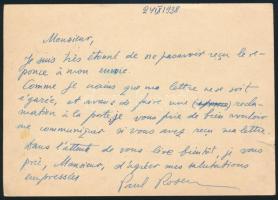 24 IX 1938
Monsieur,
je suis très étonné de ne pas avoir reçu le ré-
ponce à mon envoie.
Comme je crains que ma lettre ne se soit
égarée, et avant de faire une récla-
mation à la poste, je vous prie de bien vouloir
me communiquer si vous avez reçu ma lettre
dans l'attent de vous lire bientôt, je vous
prie, Monsieur, d'agréer mes salutations
empressées
Paul Rosen